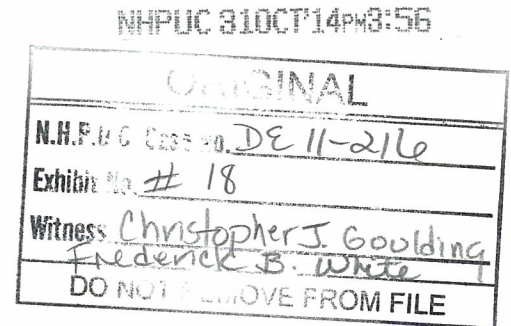 NHPUC 31OCT'14PM3:56
ORIGINAL
N.H.P.U.C. Case No. DE 11-216
Exhibit No. # 18
Witness Christopher J. Goulding
Frederick B. White
DO NOT REMOVE FROM FILE